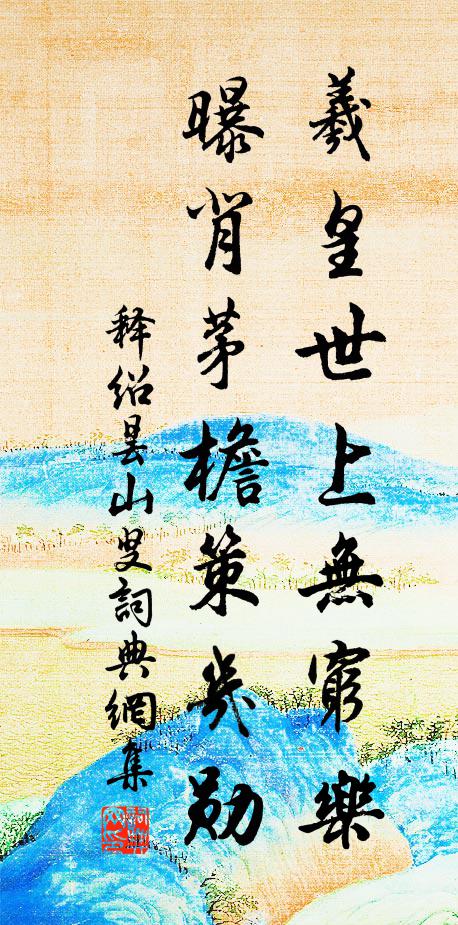 羲皇世上無窮樂
曝背茅檐策幾勛
释绍昙山叟詞典網集